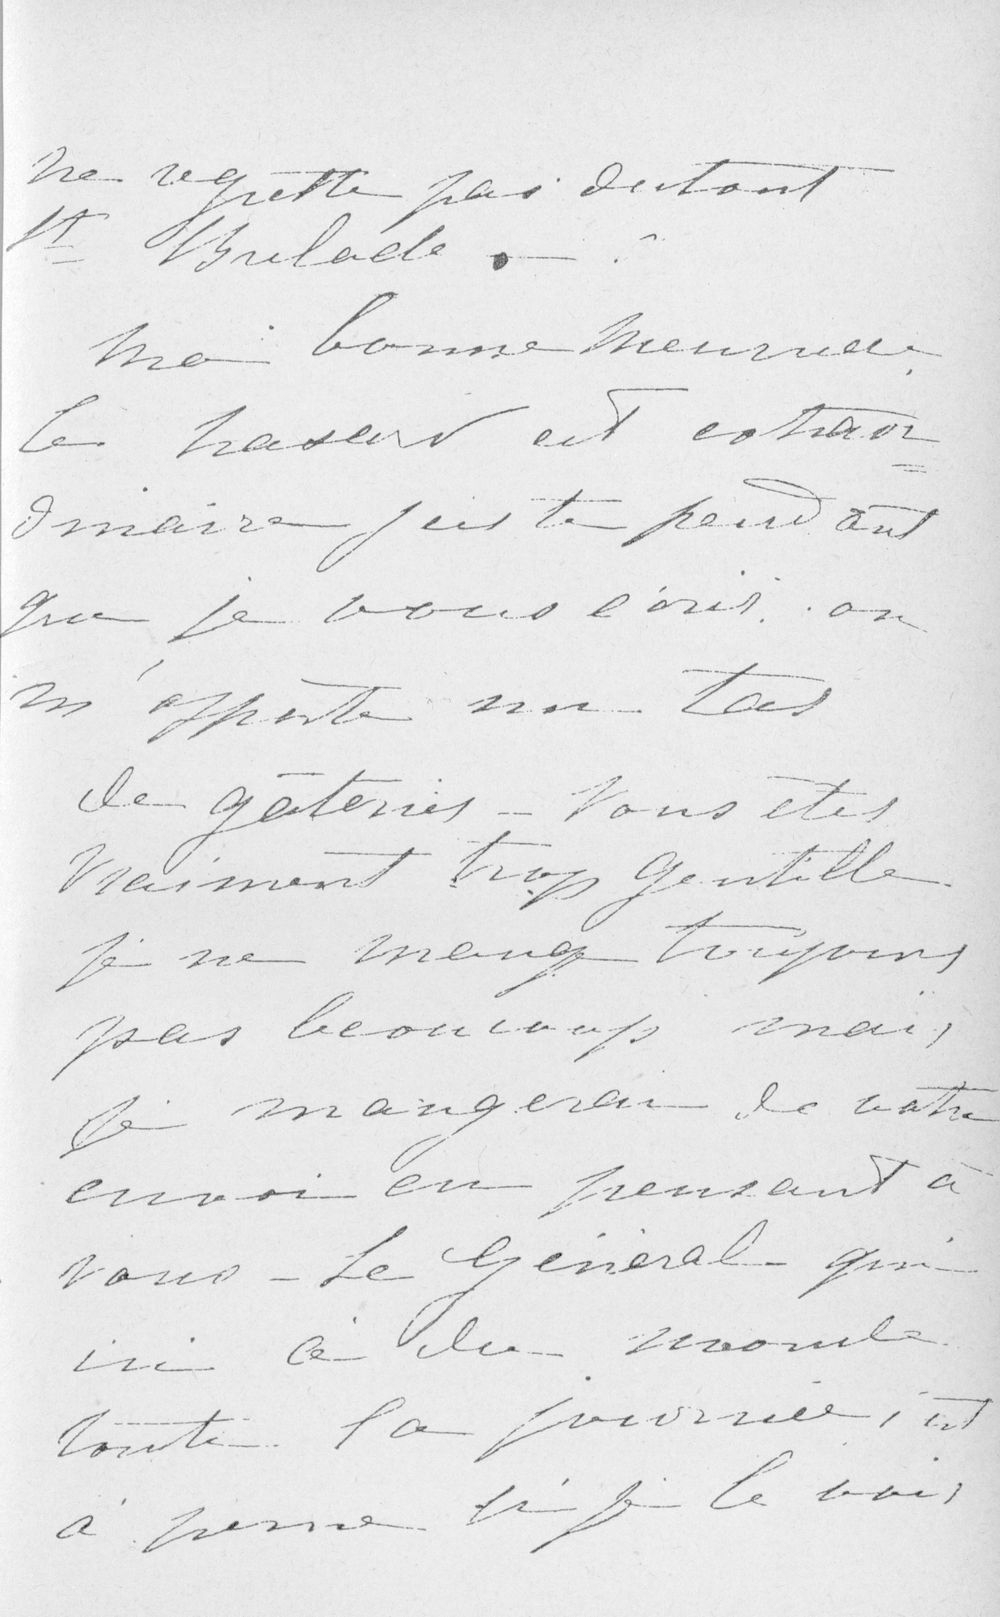 ne regrette pas du tout
St Brelade. —
Ma bonne Meunière
le hasard est extraor=
dinaire juste pendant
que je vous écris. on
m'apporte un tas
de gâteries — Vous êtes
vraiment trop gentille
je ne mange toujours
pas beaucoup mais
je mangerai de votre
envoi en pensant à
vous — Le Général — qui
ici a du monde
toute la journée, c'est
à peine si je le vois